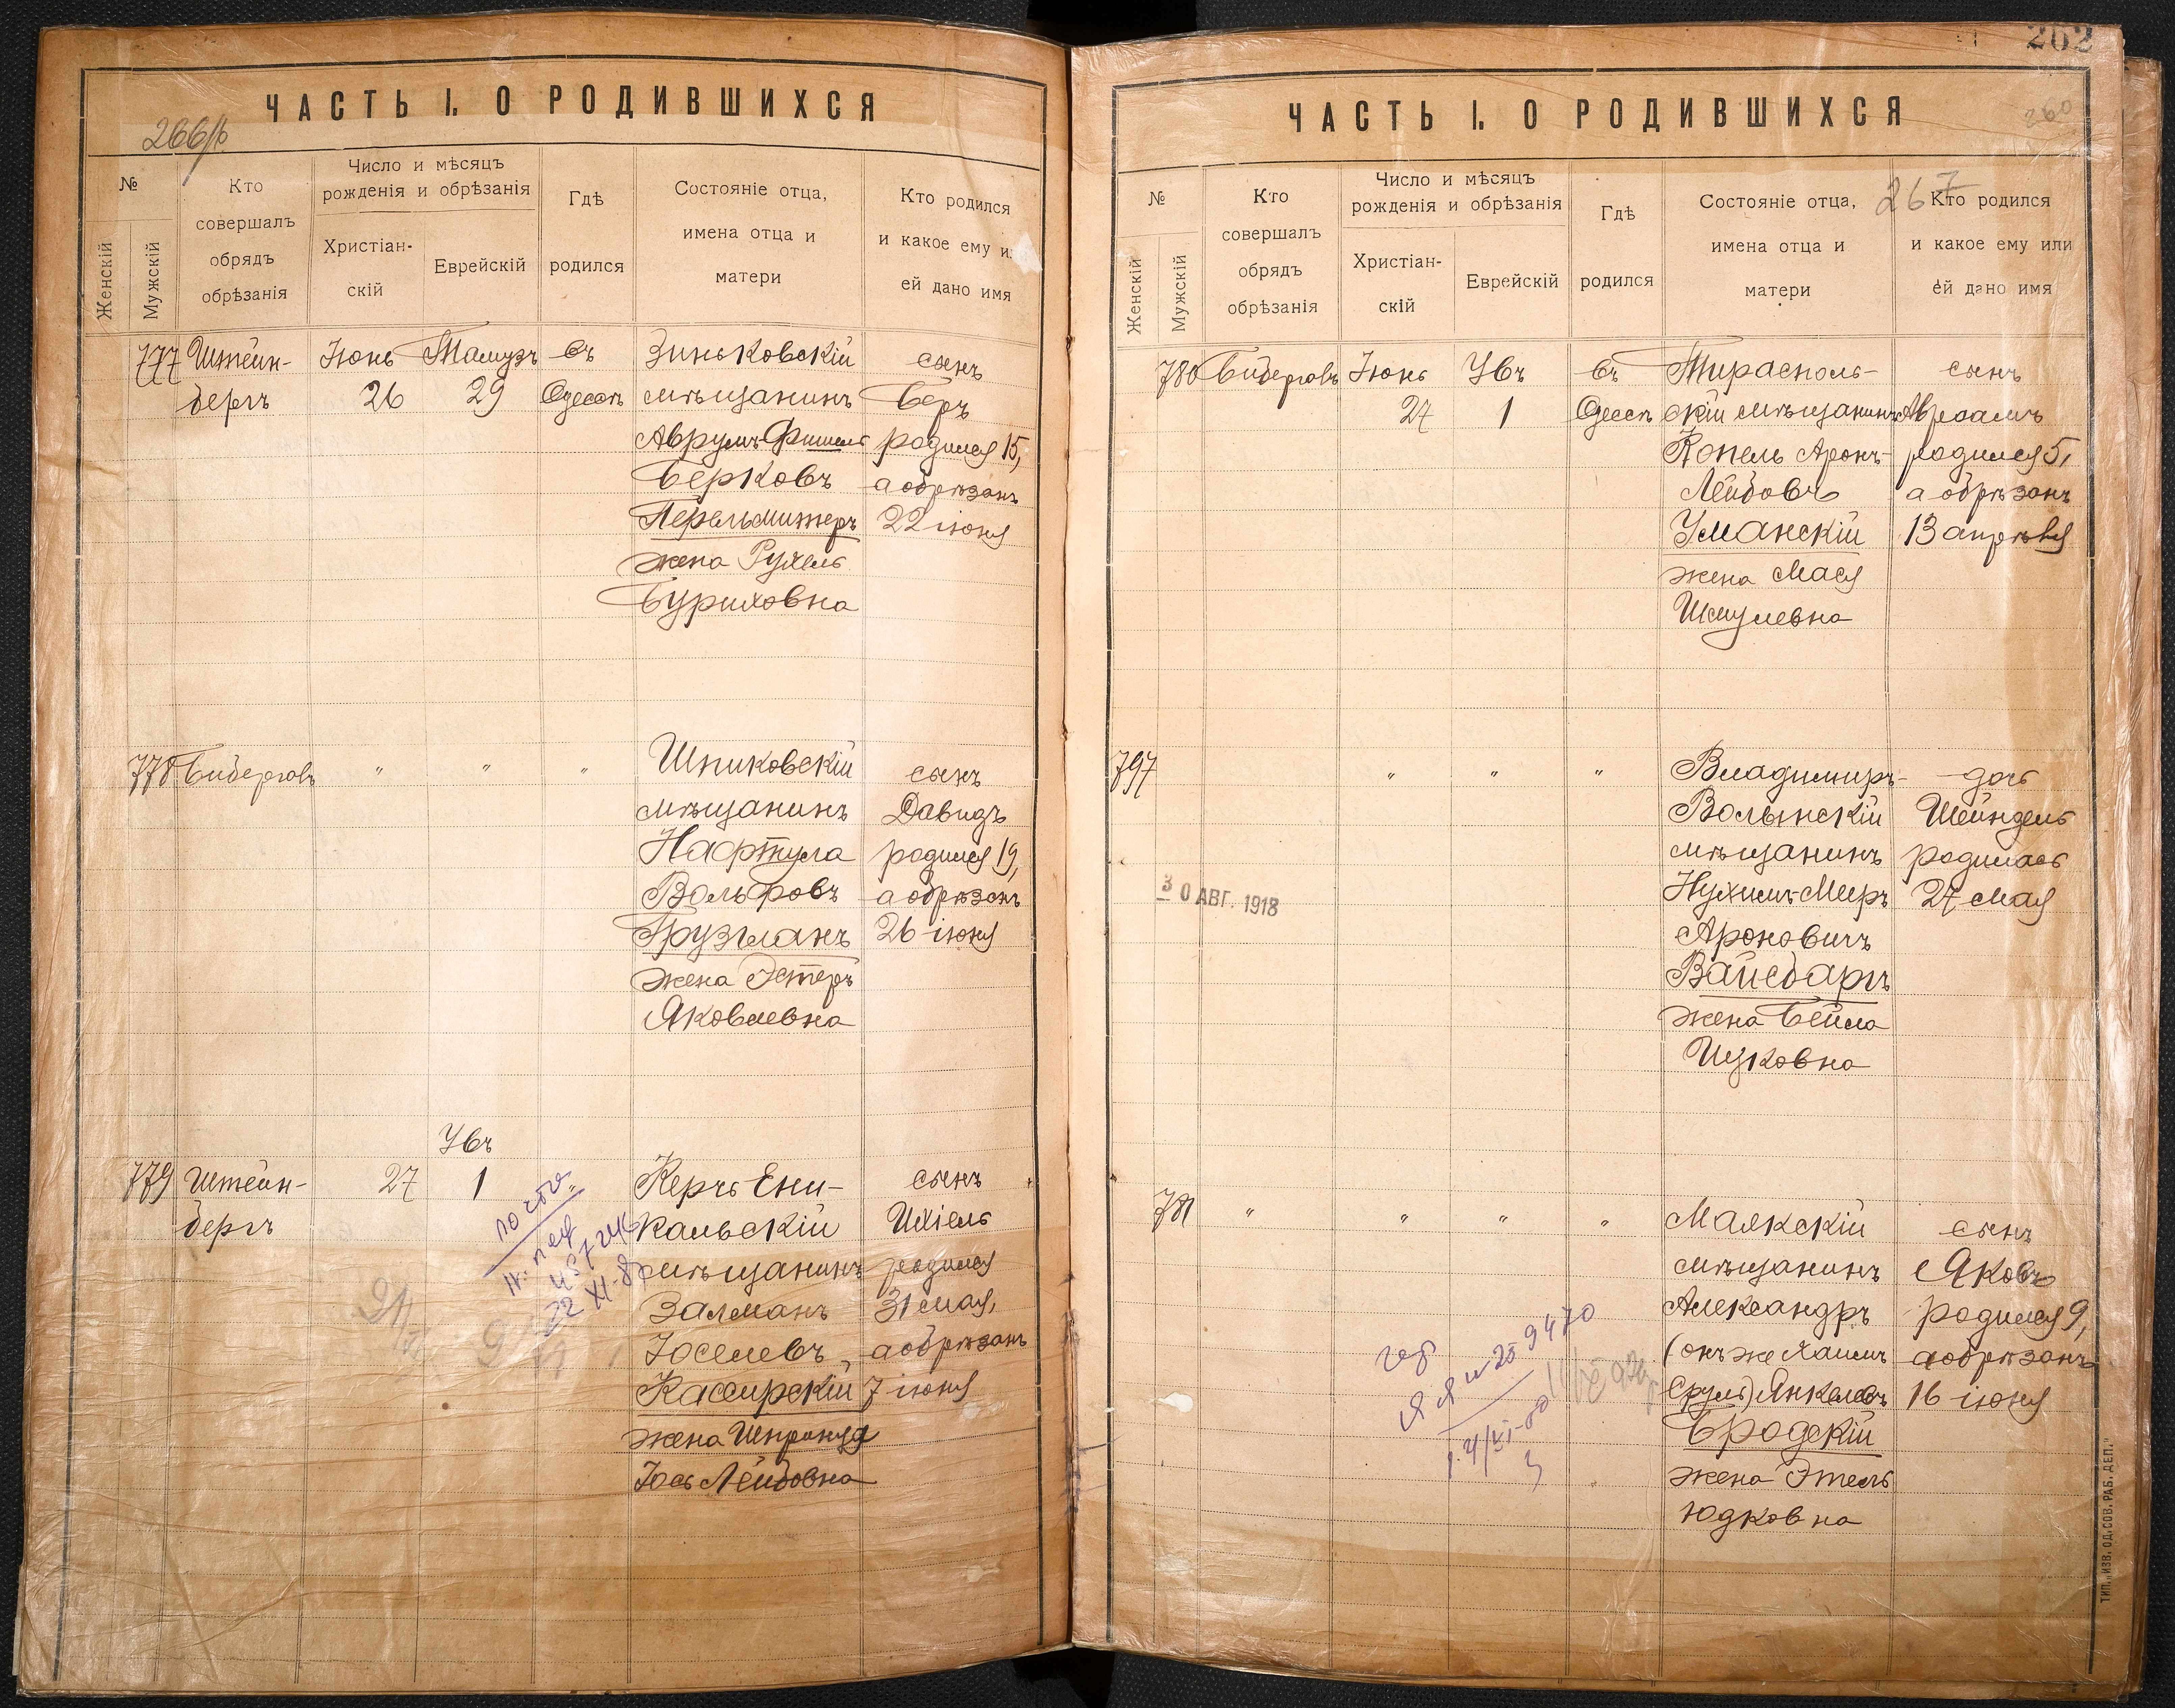 ЧАСТЬ I. О РОДИВШИХСЯ
266/б
№
Женскій
Мужскій
Кто
совершалъ
обрядъ
обрѣзанія
Число и мѣсяцъ
рожденія и обрѣзанія
Христіан-
скій
Еврейскій
Гдѣ
родился
Состояніе отца,
имена отца и
матери
Кто родился
и какое ему и
ей дано имя
777
Штейн-
бергъ
Іюнь
26
Тамузъ
29
въ
Одессѣ
Зиньковскій
мѣщанинъ
Аврумъ-Фишель
Берковъ
Перельмитеръ
жена Рухель
Буриховна
сынъ
Беръ
родился 15,
а обрѣзанъ
22 іюня
778
Биберговъ
" " "
Шпиковскій
мѣщанинъ
Нафтула
Вольфовъ
Грузманъ
жена Эстеръ
Яковлевна
сынъ
Давидъ
родился 19,
а обрѣзанъ
26 іюня
779
Штейн-
бергъ
27
Увъ
1
"
Керчь-Ени-
кальскій
мѣщанинъ
Залманъ
Іоселевъ
Кассирскій
жена Шпринца
Іось-Лейбовна
сынъ
Ихіель
родился
31 мая,
а обрѣзанъ
7 іюня
202
ЧАСТЬ I. О РОДИВШИХСЯ
260
267
№
Женскій
Мужскій
Кто
совершалъ
обрядъ
обрѣзанія
Число и мѣсяцъ
рожденія и обрѣзанія
Христіан-
скій
Еврейскій
Гдѣ
родился
Состояніе отца,
имена отца и
матери
Кто родился
и какое ему или
ей дано имя
780
Биберговъ
Іюнь
27
Увъ
1
въ
Одессѣ
Тирасполь-
скій мѣщанинъ
Копель Аронъ-
Лейбовъ
Уманскій
жена Мася
Шмулевна
сынъ
Авраамъ
родился 5,
а обрѣзанъ
13 апрѣля
797
" " "
Владимиръ-
Волынскій
мѣщанинъ
Нухимъ-Мееръ
Ароновичъ
Вайсбаргъ
жена Бейла
Ицковна
дочь
Шейндель
родилась
27 мая
30 АВГ. 1918
781
" " " "
Маякскій
мѣщанинъ
Александръ
(онъ же Хаимъ
Сруль) Янкелевъ
Бродскій
жена Этель
Юдковна
сынъ
Яковъ
родился 9,
а обрѣзанъ
16 іюня
ТИП. „ИЗВ. ОД. СОВ. РАБ. ДЕП."